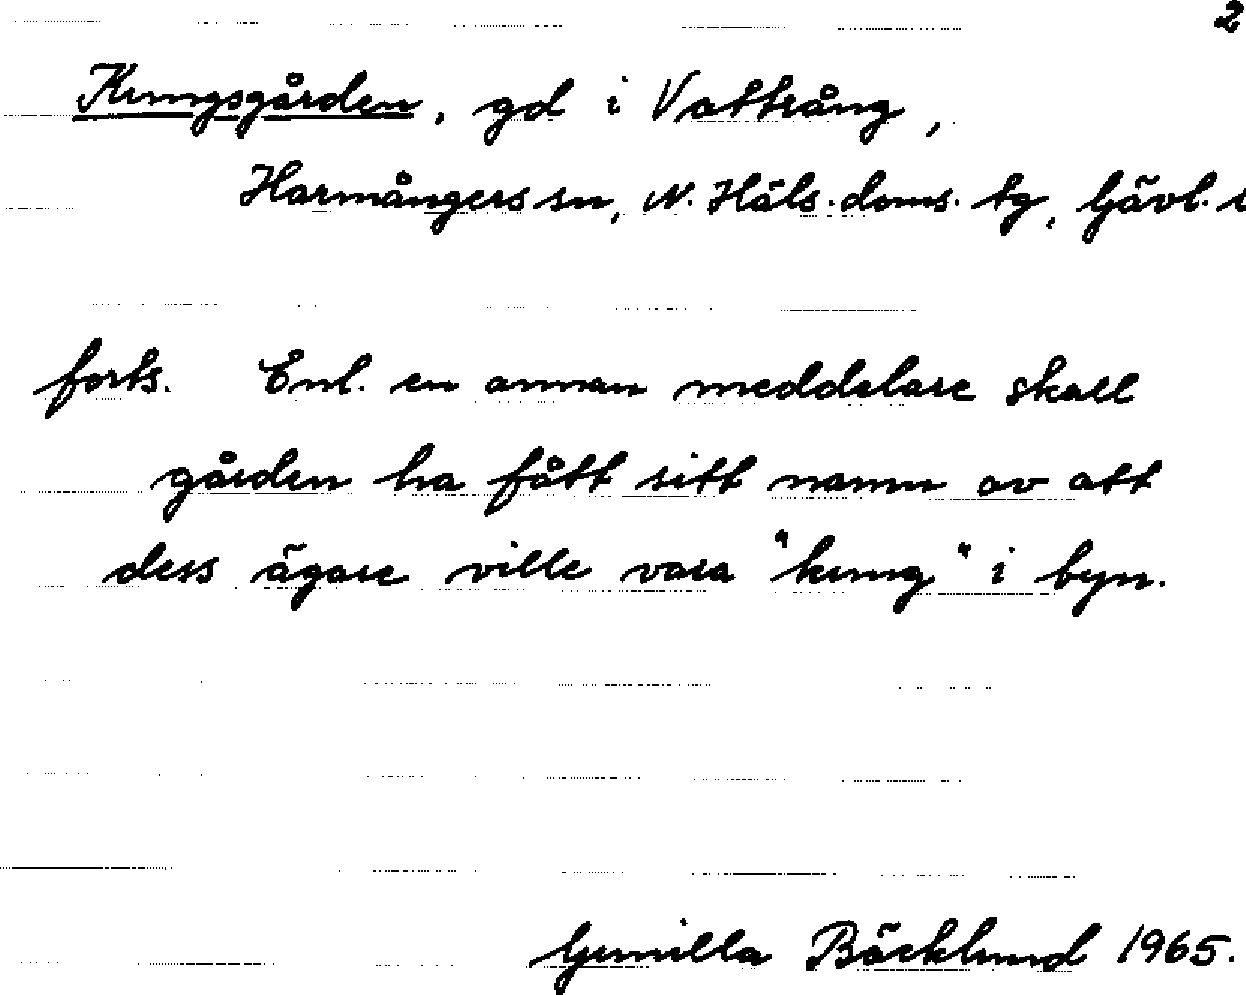 2
Kungsgården, gd i Vattrång,
Harmångers sn, N. Häls. doms. tg, Gävl. l
forts. Enl. en annan meddelare skall
gården ha fått sitt namn av att
dess ägare ville vara "kung" i byn.
Gunilla Bäcklund 1965.